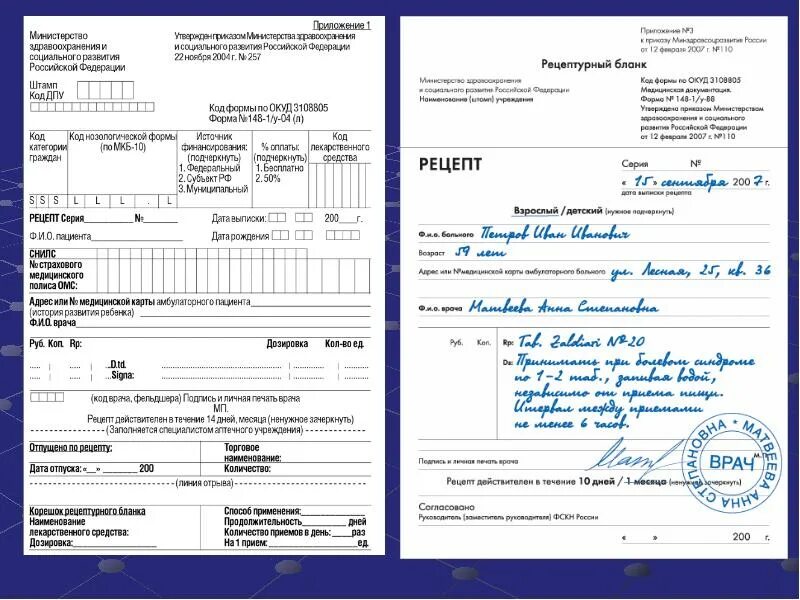 Приложение 1
Министерство
здравоохранения и
социального развития
Российской Федерации
Утвержден приказом Министерства здравоохранения
и социального развития Российской Федерации
22 ноября 2004 г. № 257
Штамп
Код ДПУ
Код формы по ОКУД 3108805
Форма № 148-1/у-04 (л)
Код
категории
граждан
Код нозологической формы
(по МКБ-10)
Источник
финансирования:
(подчеркнуть)
1. Федеральный
2. Субъект РФ
3. Муниципальный
% оплаты:
(подчеркнуть)
1. Бесплатно
2. 50%
Код
лекарственного
средства
S S S L L L . L
РЕЦЕПТ Серия №
Дата выписки: 200 г.
Ф.И.О. пациента
Дата рождения
СНИЛС
№ страхового
медицинского
полиса ОМС:
Адрес или № медицинской карты амбулаторного пациента
(история развития ребенка)
Ф.И.О. врача
Руб. Коп. Rp: Дозировка Кол-во ед.
D.td.
Signa:
(код врача, фельдшера) Подпись и личная печать врача
МП.
Рецепт действителен в течение 14 дней, месяца (ненужное зачеркнуть)
(Заполняется специалистом аптечного учреждения)
Отпущено по рецепту:
Торговое
наименование:
Дата отпуска: «__» 200
Количество:
(линия отрыва)
Корешок рецептурного бланка
Наименование
лекарственного средства:
Дозировка:
Способ применения:
Продолжительность дней
Количество приемов в день: раз
На 1 прием: ед.
Приложение №3
к приказу Минздравсоцразвития России
от 12 февраля 2007 г. №110
Рецептурный бланк
Министерство здравоохранения
и социального развития Российской Федерации
Наименование (штамп) учреждения
Код формы по ОКУД 3108805
Медицинская документация.
Форма № 148-1/у-88
Утверждена приказом Министерством
здравоохранения и социального
развития Российской Федерации
от 12 февраля 2007 г. №110
РЕЦЕПТ
Серия №
« 15 » сентября 2007 г.
дата выписки рецепта
Взрослый /детский (нужное подчеркнуть)
Ф.и.о. больного Петров Иван Иванович
Возраст 59 лет
Адрес или №медицинской карты амбулаторного больного ул. Лесная, 25, кв. 36
Ф.и.о. врача Матвеева Анна Степановна
Руб. Коп. Rp: Tab. Zaldiari №20
Ds: Принимать при болевом синдроме
по 1-2 таб., запивая водой,
независимо от приема пищи.
Интервал между приемами
не менее 6 часов.
Подпись и личная печать врача
МАТВЕЕВА АННА СТЕПАНОВНА *
ВРАЧ
Рецепт действителен в течение 10 дней / 1 месяца (ненужное зачеркнуть)
Согласовано
Руководитель (заместитель руководителя) ФСКН России
« » 200 г.